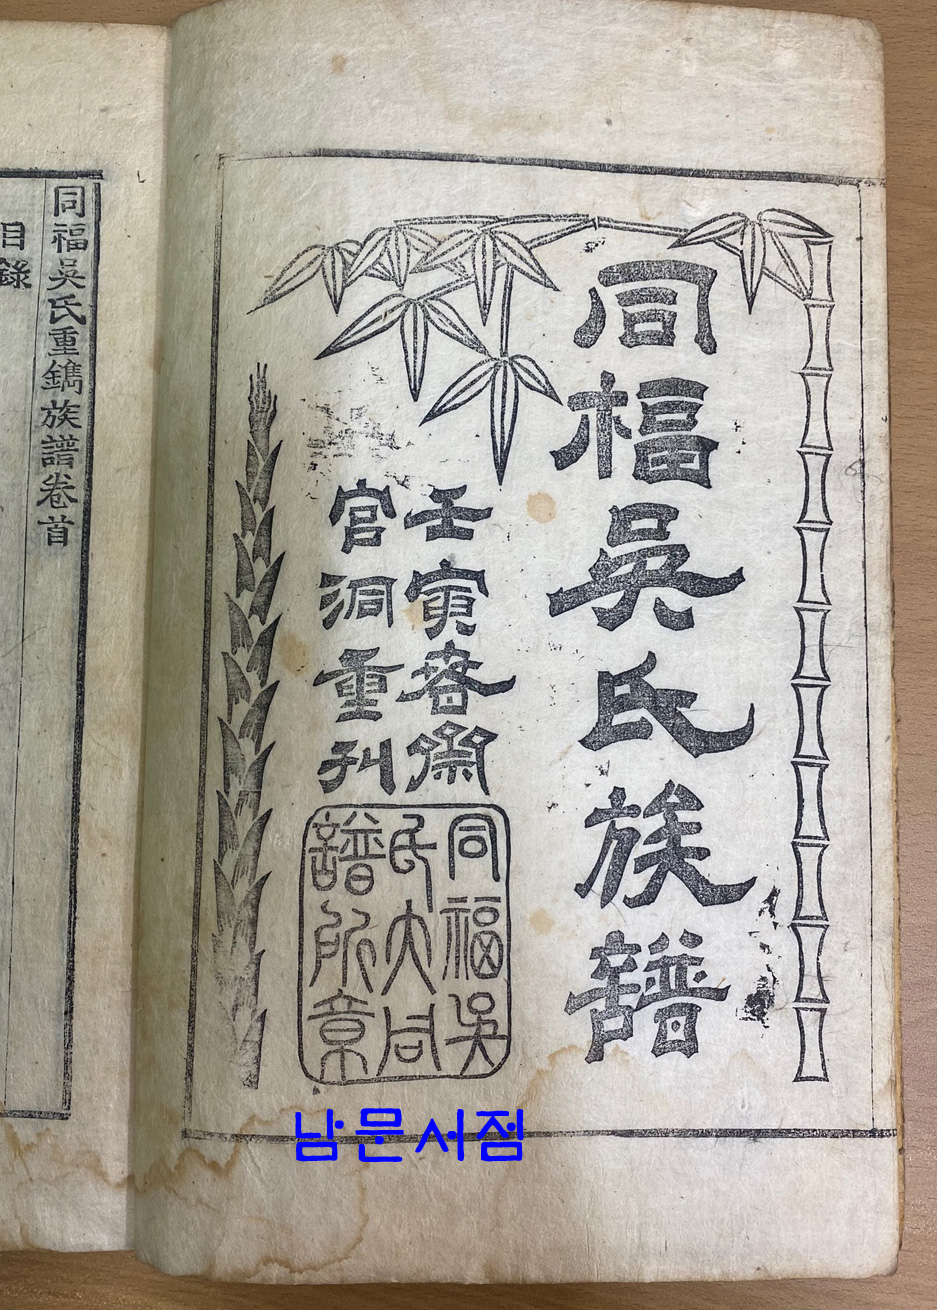 同福吳氏族譜
壬寅春
官洞重刊
同福吳
氏大同
譜所章
同福吳氏重鐫族譜卷首
目錄
남문서점